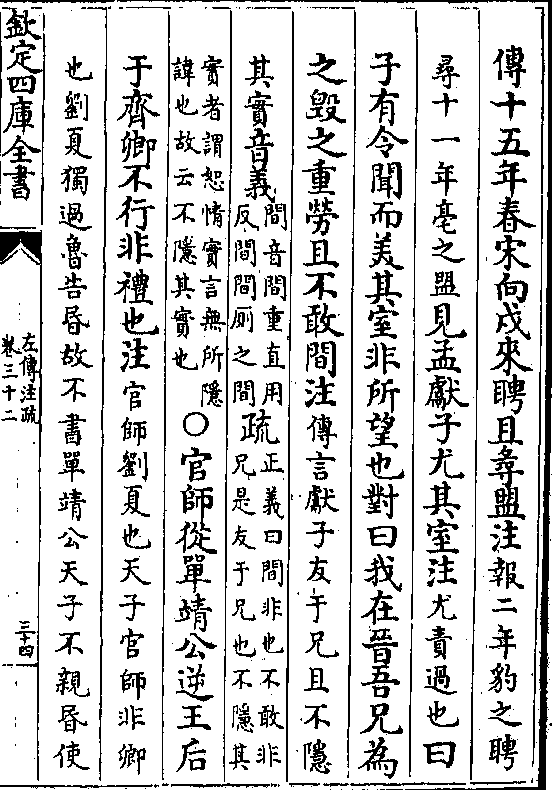 傳十五年春宋向戌來聘且尋盟注報二年豹之聘
尋十一年亳之盟見孟獻子尤其室注尤責過也曰
子有令聞而美其室非所望也對曰我在晉吾兄為
之毀之重勞且不敢間注傳言獻子友于兄且不隱
其實音義間音間重直用
反間間厠之間疏正義曰間非也不敢非
兄是友于兄也不隱其
實者謂恕情實言無所隱
諱也故云不隱其實也○官師從單靖公逆王后
于齊卿不行非禮也注官師劉夏也天子官師非卿
也劉夏獨過魯告昏故不書單靖公天子不親昏使
欽定四庫全書
左傳注疏
卷三十二
三十四